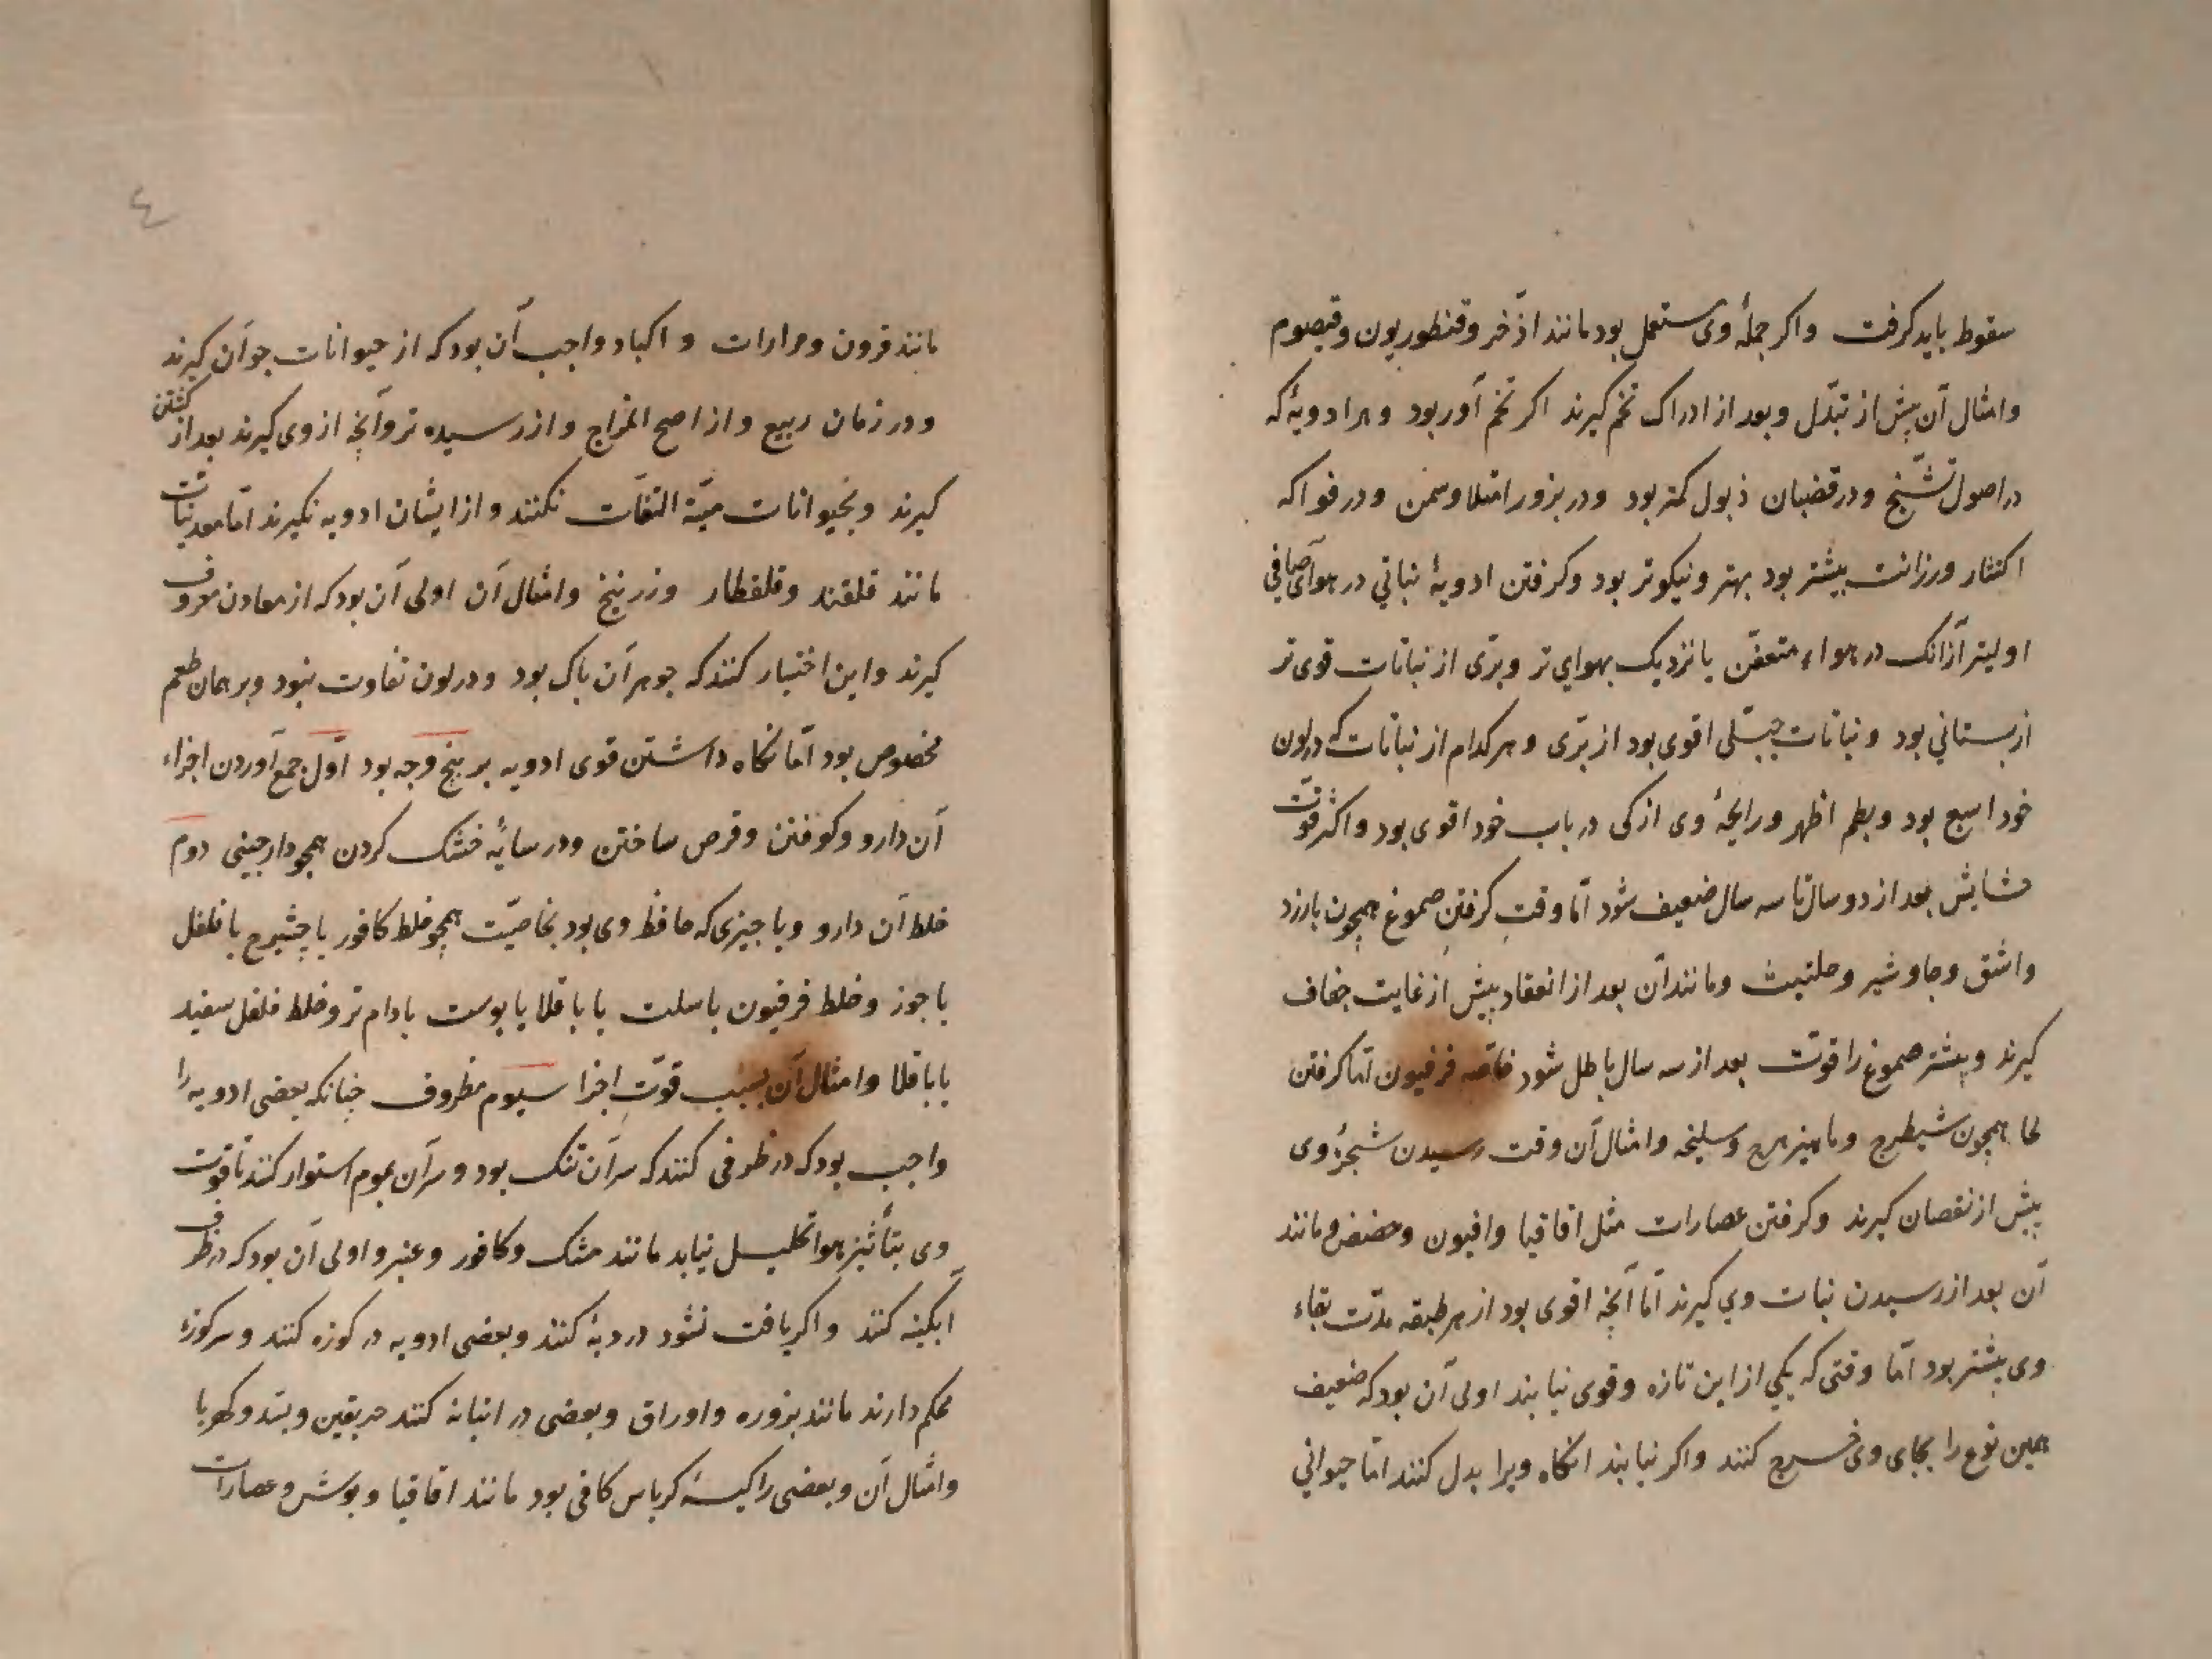 سقوط باید کرفت واکر جملهٔ وی مستعمل بود مانند اذخر و قنطوریون و قیصوم
وامثال آن پیش از تبدّل وبعد از ادراک تخم کیرند اکر تخم آور بود و هر ادویهٔ که
در اصول تشنّج ودر قضبان ذبول کمتر بود ودر بزور امتلا وسمن ودر فواکه
اکتناز ورزانت بیشتر بود بهتر ونیکوتر بود وکرفتن ادویهٔ نباتي در هوای صافي
اولیتر ازانک در هواء متعفّن یا نزدیک بهوایي تر وبرّی از نباتات قوی تر
از بستاني بود ونباتات جبلّی اقوی بود از برّی و هر کدام از نباتات که در لون
خود اسبع بود وبطعم اظهر ورایحهٔ وی ازکی در باب خود اقوی بود واکثر قوّت
حشایش بعد از دو سال تا سه سال ضعیف شود امّا وقت کرفتن صموغ همچون بارزد
واشق وجاوشیر وحلتیث ومانند آن بعد از انعقاد پیش از غایت جفاف
کیرند وبیشتر صموغ را قوّت بعد از سه سال باطل شود خاصّه فرفیون امّا کرفتن
لحا همچون شیطرج وماهیزهرج وسلیخه وامثال آن وقت رسیدن شجرهٔ وی
پیش از نقصان کیرند وکرفتن عصارات مثل اقاقیا وافیون وحضض ومانند
آن بعد از رسیدن نبات وي کیرند امّا آنچه اقوی بود از هر طبقه مدّت بقاء
وی بیشتر بود امّا وقتی که یکي از این تازه وقوی نیابند اولی آن بود که ضعیف
همین نوع را بجای وی خرج کنند واکر نیابند انکاه ویرا بدل کنند امّا حیواني
٤
مانند قرون ومرارات و اکباد واجب آن بود که از حیوانات جوان کیرند
ودر زمان ربیع واز اصح المزاج واز رسیده تر وآنچه از وی کیرند بعد از کشتن
کیرند وبحیوانات میّتة التفات نکنند واز ایشان ادویه نکیرند امّا معدنیات
مانند قلقند وقلقطار وزرنیخ وامثال آن اولی آن بود که از معادن معروف
کیرند واین اختیار کنند که جوهر آن پاک بود ودر لون تفاوت نبود وبر همان طعم
مخصوص بود امّا نکاه داشتن قوی ادویه بر پنج وجه بود اوّل جمع آوردن اجزاء
آن دارو وکوفتن وقرص ساختن ودر سایهٔ خشک کردن همچو دارچینی دوم
خلط آن دارو وبا چیزی که حافظ وی بود بخاصیّت همچو خلط کافور با چشیرج با فلفل
یا جوز وخلط فرفیون با سلت یا باقلا یا پوست بادام تر وخلط فلفل سفید
با باقلا وامثال آن بسبب قوّت اجزا سیوم مظروف چنانکه بعضی ادویه را
واجب بود که در ظرفی کنند که سر آن تنک بود وسر آن بموم استوار کنند تا قوّت
وی بتأثیر هوا تحلیل نیابد مانند مشک وکافور وعنبر واولی آن بود که در ظرف
آبکینه کنند واکر یافت نشود در دبهٔ کنند وبعضی ادویه در کوزه کنند وسر کوزهٔ
محکم دارند مانند بزوره واوراق وبعضی در انبانه کنند حریقین وبسد وکهربا
وامثال آن وبعضی را کیسهٔ کرباس کافی بود مانند اقاقیا وبوش وعصارات